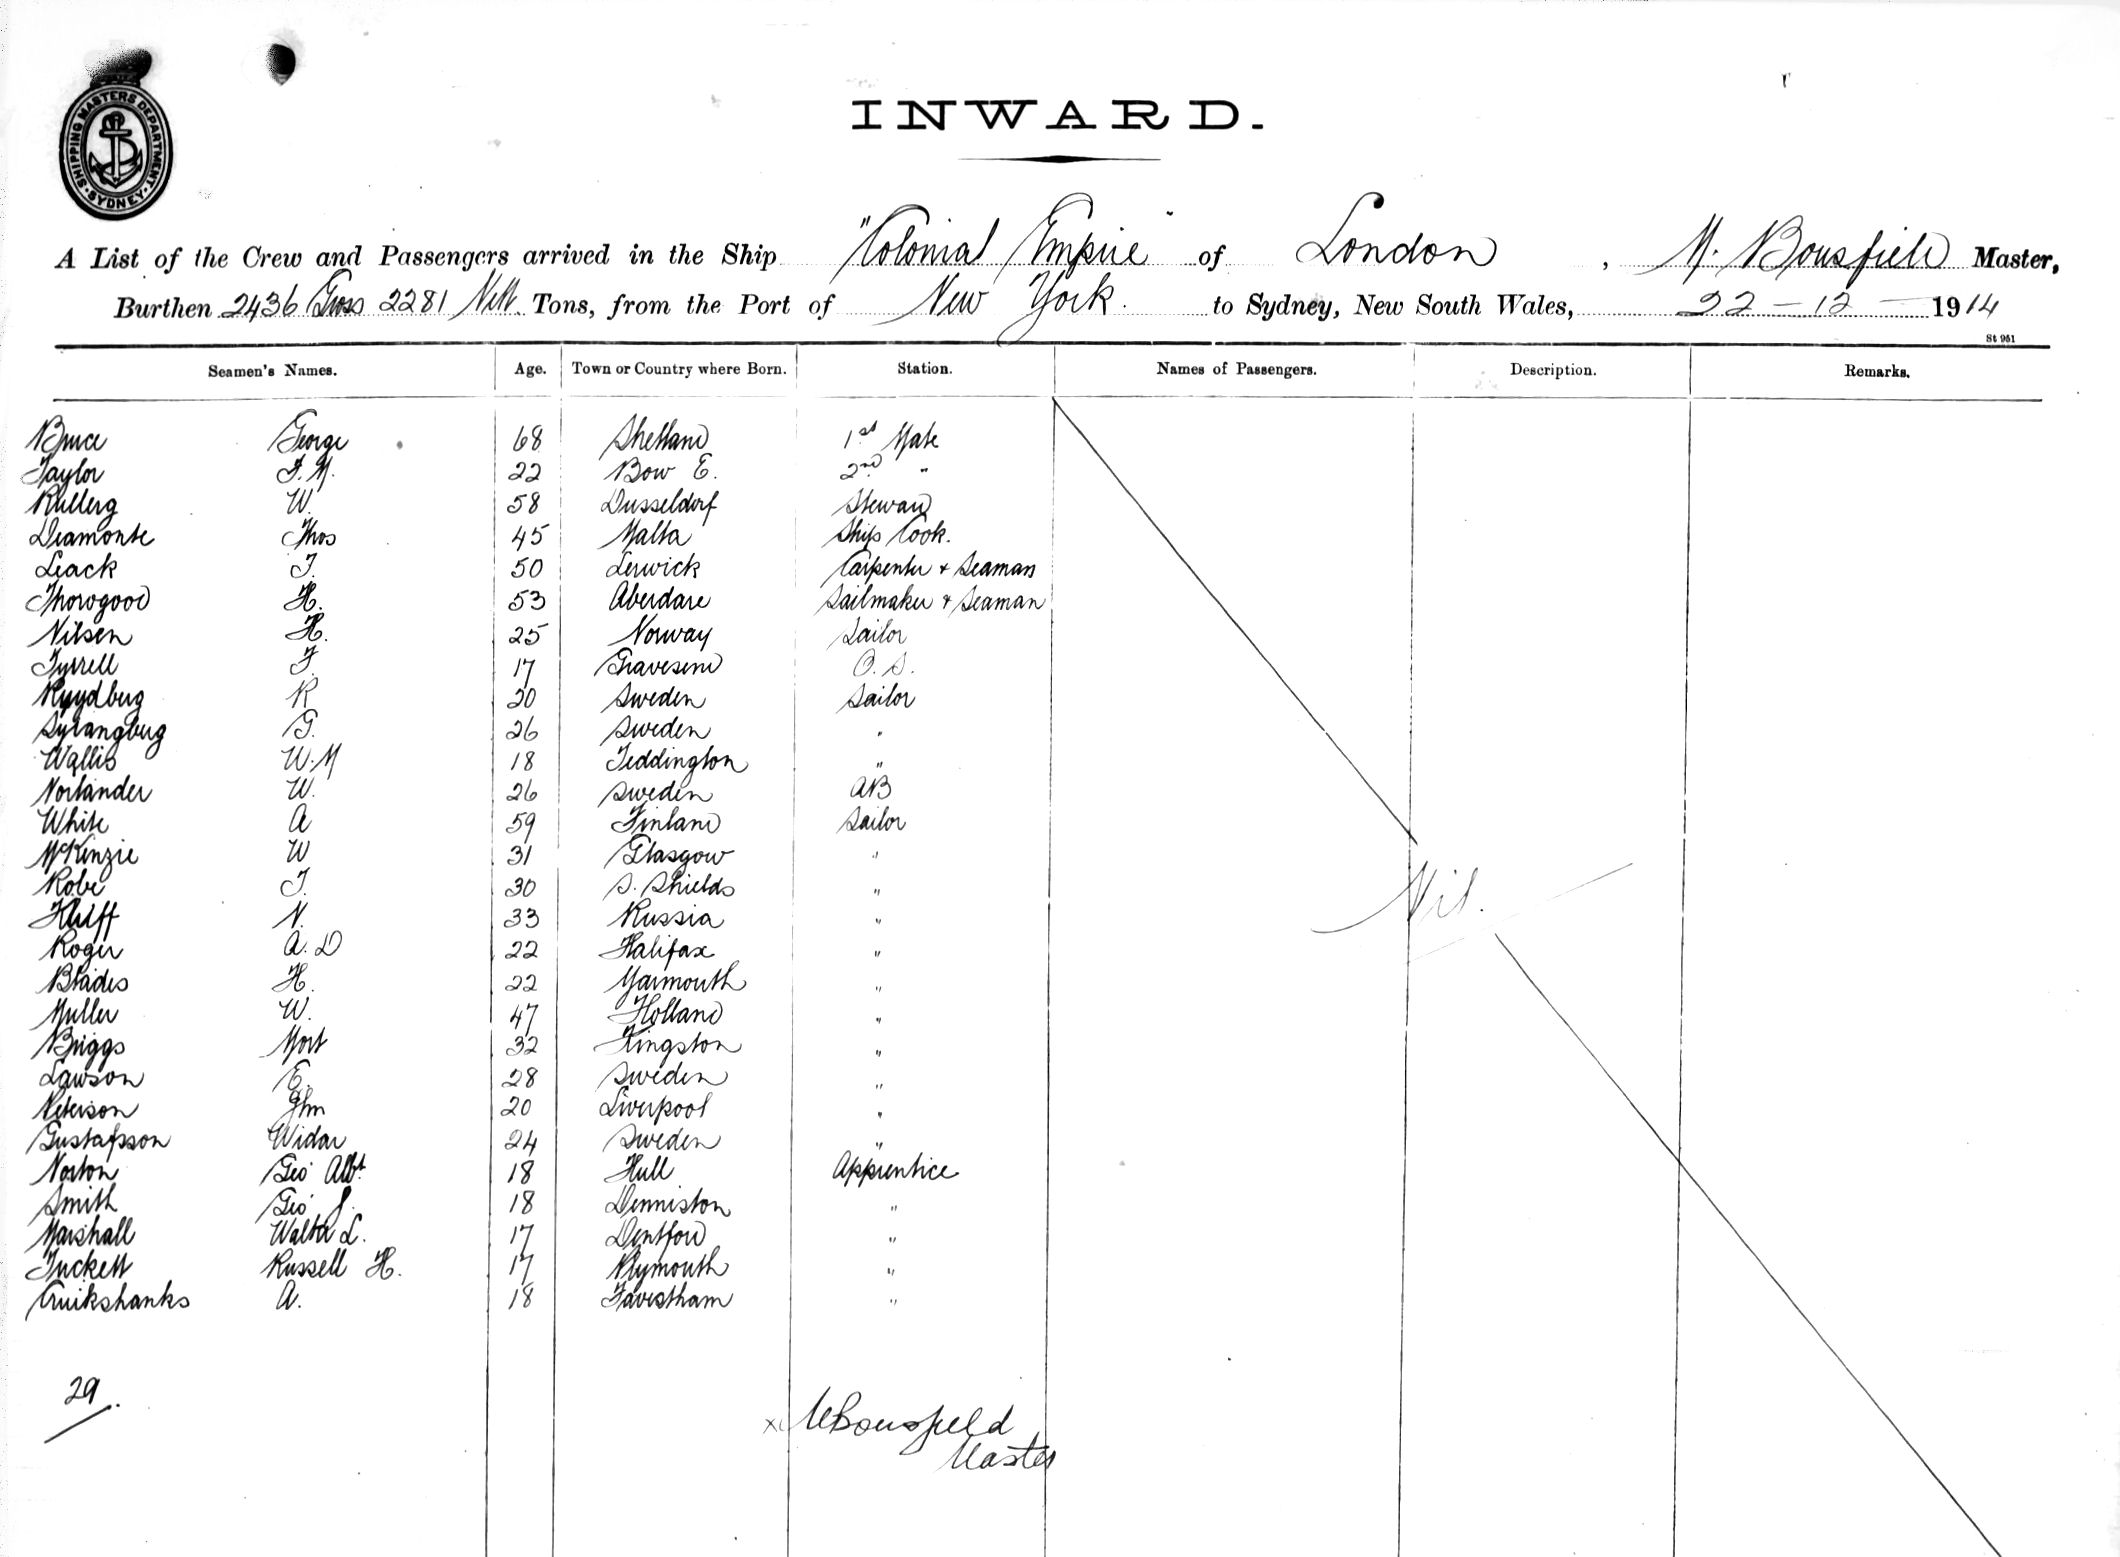 SHIPPING MASTERS DEPARTMENT
SYDNEY
INWARD.
A List of the Crew and Passengers arrived in the Ship "Colonial Empire" of London, M. Bousfield Master,
Burthen 2436 Gross 2281 Nett. Tons, from the Port of New York. to Sydney, New South Wales, 22-12-1914
St 951
Seamen's Names. Age. Town or Country where Born. Station. Names of Passengers. Description. Remarks.
Bruce George 68 Shetland 1st Mate
Taylor F.M. 22 Bow E. 2nd "
W. 58 Dusseldorf Steward
Diamonte Thos 45 Malta Ships Cook.
Leack J. 50 Lerwick Carpenter + Seaman
Thorogood H. 53 Aberdare Sailmaker + Seaman
Nilsen H. 25 Norway Sailor
Tyrrell F. 17 Gravesend O.S.
Ryydberg R 20 Sweden Sailor
G. 26 Sweden "
Wallis W.M 18 Teddington "
Norlander W. 26 Sweden AB
White A 59 Finland Sailor
McKinzie W 31 Glasgow "
Robe J. 30 S. Shields "
N. 33 Russia "
Roger A.D 22 Halifax "
Blades H. 22 Yarmouth "
Muller W. 47 Holland "
Briggs Mort 32 Kingston "
Lawson E. 28 Sweden "
Peterson Jhn 20 Liverpool "
Gustafsson Widar 24 Sweden "
Norton Geo Albt 18 Hull Apprentice
Smith Geo J. 18 Denniston "
Marshall Walter L. 17 "
Tuckett Russell H. 17 Plymouth "
Cruikshanks A. 18 Faversham "
Nil.
29.
x MBousfield
Master